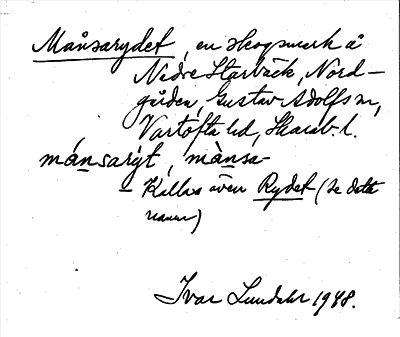 Månsarydet, en skogsmark å
Nedre Starbäck, Nord-
gården, Gustav Adolfs sn,
Vartofta hd, Skarab. l.
mánsarýt, mànsa-
– Kallas även Rydet (se detta
namn)
Ivar Lundahl 1948.